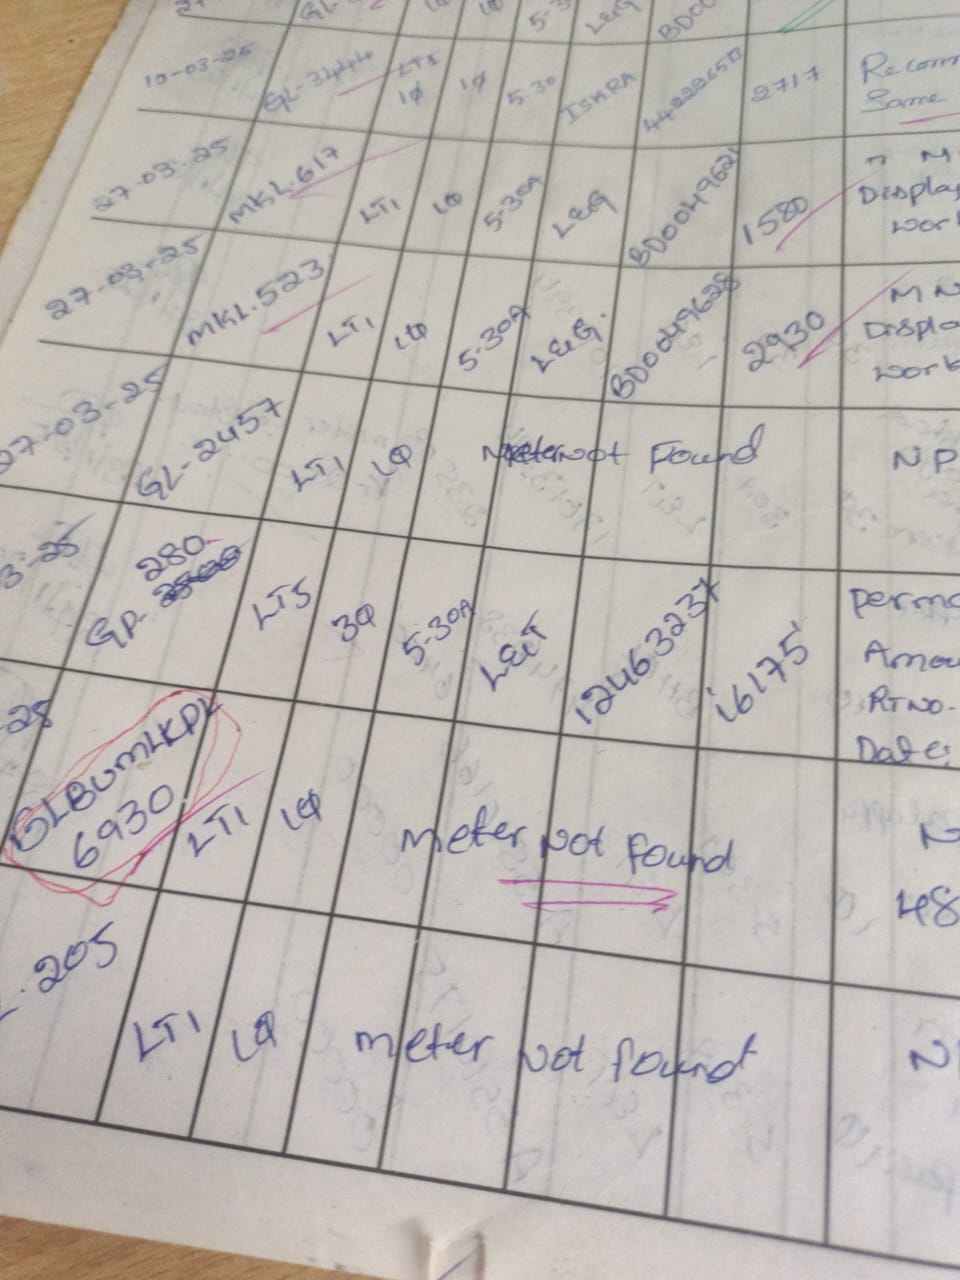 GL- 1Φ 5-3 L&G BD00
10-03-25 GL-3444 LT1 1Φ 1Φ 5-30 ISKRA 2717 Recomm
Same
27-03-25 MKL.617 LT1 1Φ 5-30A L&G BD0049621 1580 M
Display
work
27-03-25 MKL.523 LT1 1Φ 5-30A L&G. BD0049628 2930 MN
Displa
work
27-03-25 GL-2457 LT1 1Φ Meter not Found NP
3-25 GP- 280 LT5 3Φ 5-30A L&T 12463237 16175 perma
Amou
RTNO.
Date:
-25 GLBUMLKPL
6930 LT1 1Φ meter not found N
48
L.205 LT1 1Φ meter not found N